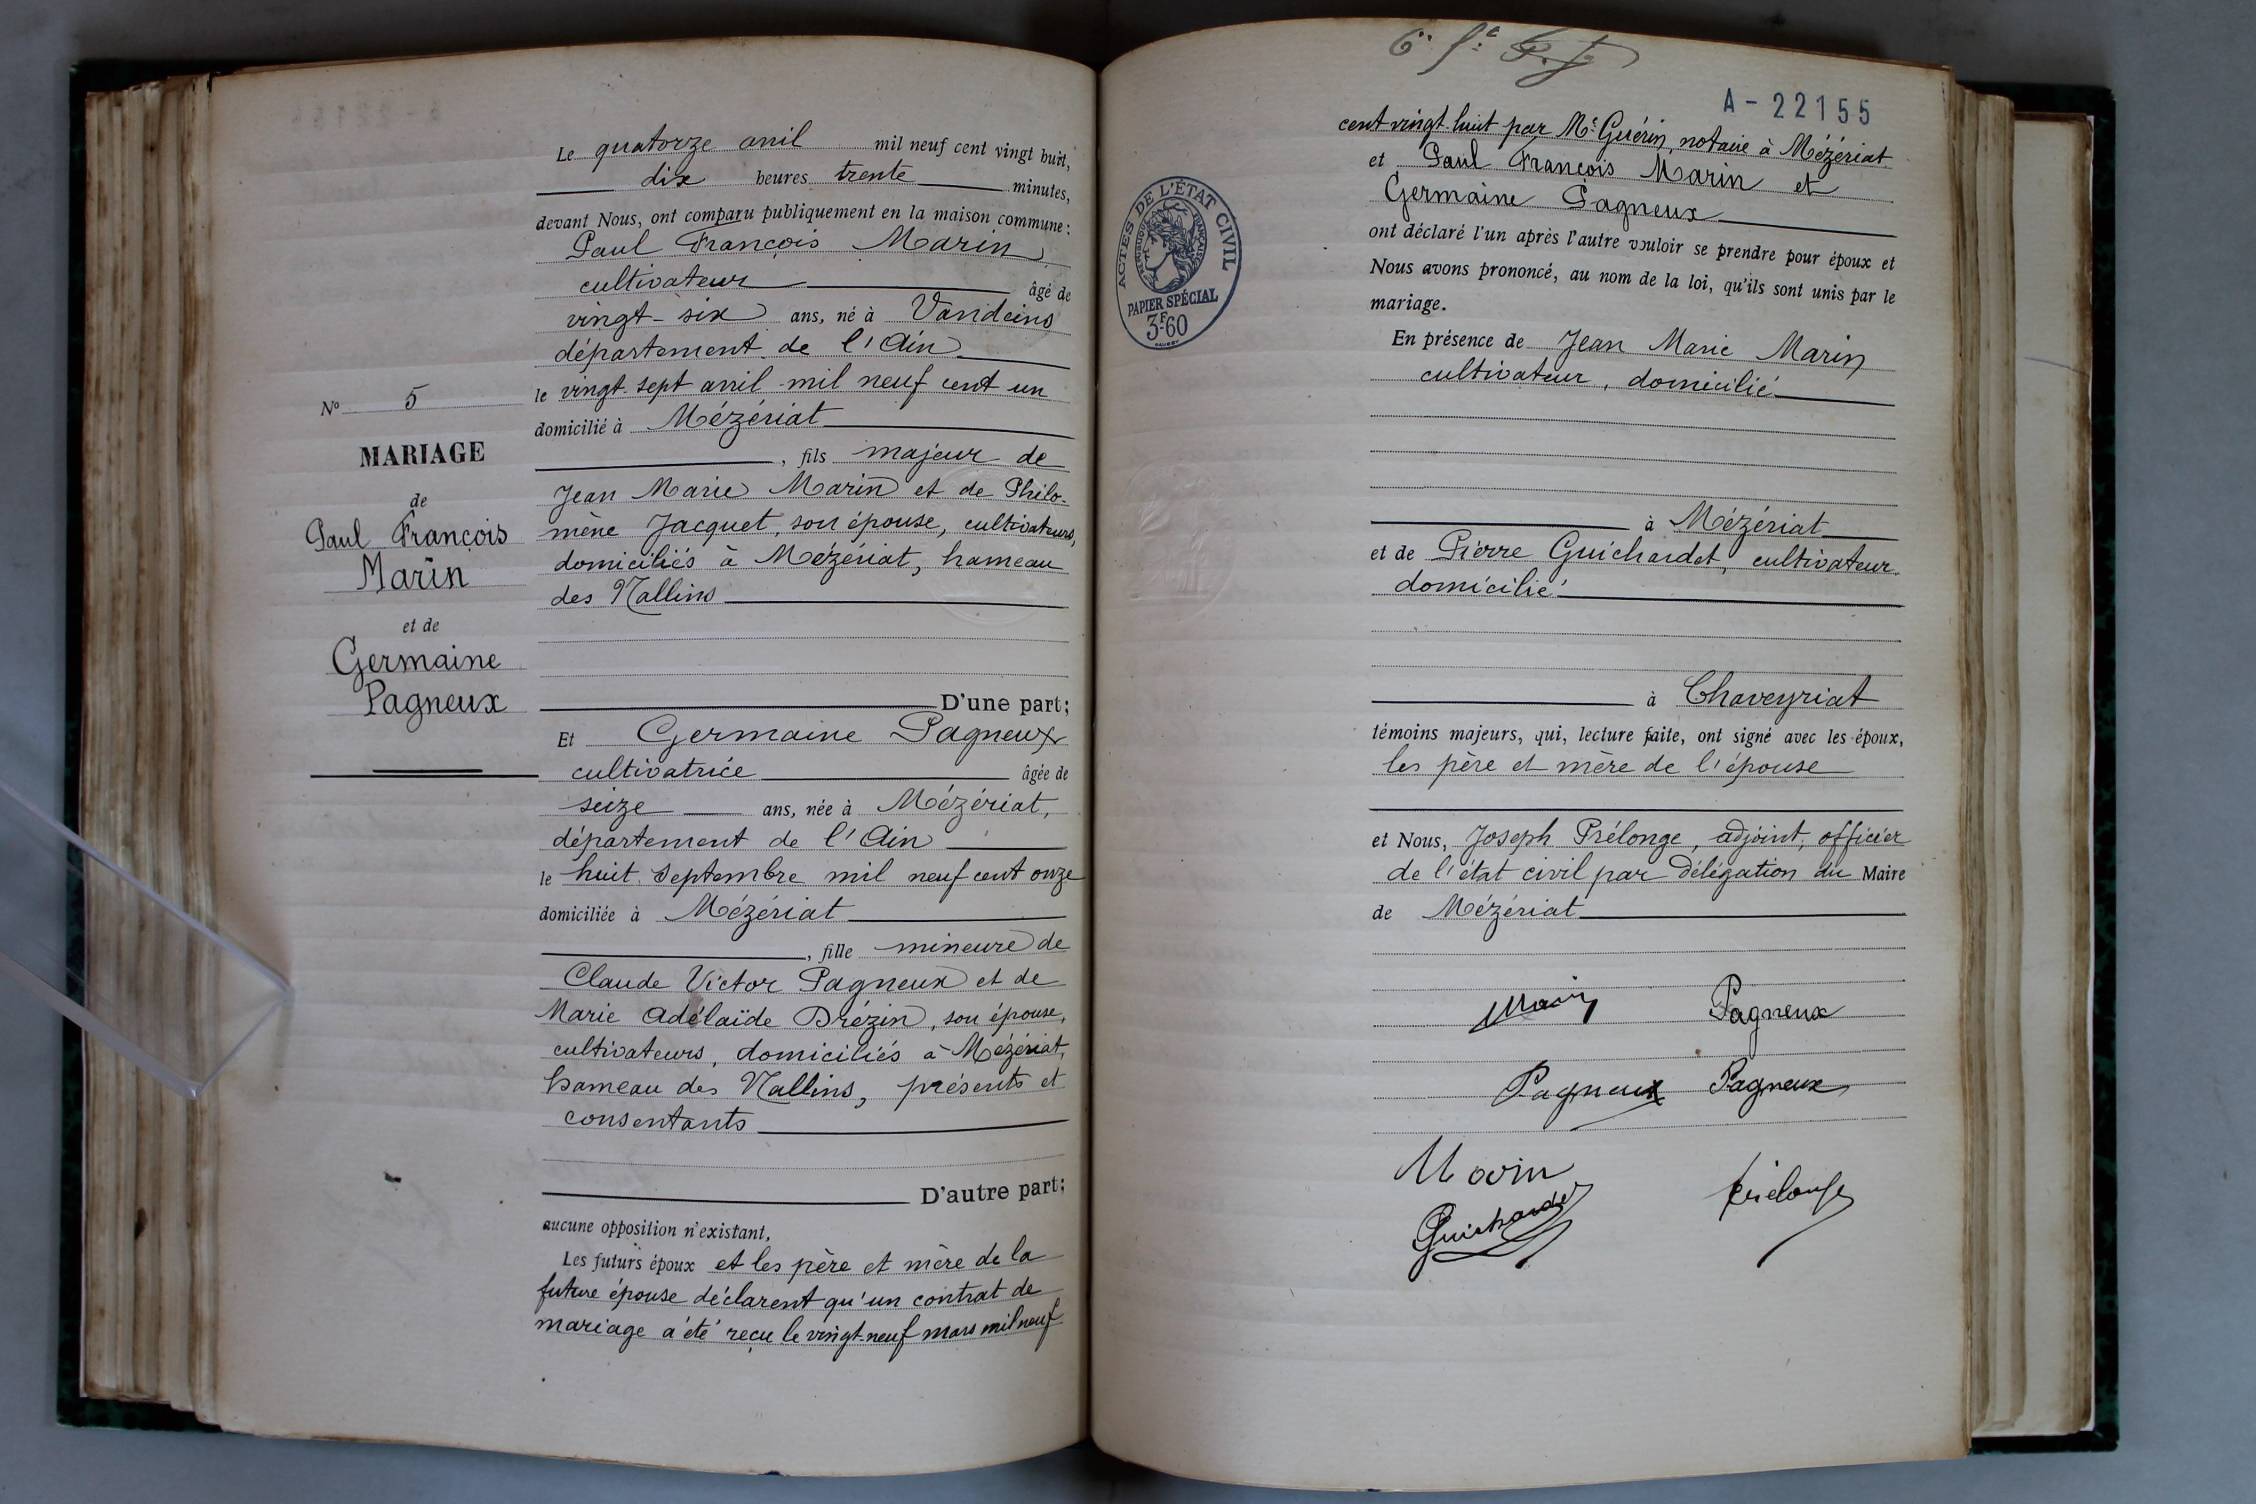 N° 5
MARIAGE
de
Paul François
Marin
et de
Germaine
Pagneux
Le quatorze avril mil neuf cent vingt huit,
dix heures trente minutes,
devant Nous, ont comparu publiquement en la maison commune:
Paul François Marin
cultivateur âgé de
vingt-six ans, né à Vandeins
département de l'Ain
le vingt-sept avril mil neuf cent un
domicilié à Mézériat
, fils majeur de
Jean Marie Marin et de Philo-
mène Jacquet, son épouse, cultivateurs,
domiciliés à Mézériat, hameau
des Nallins
D'une part;
Et Germaine Pagneux
cultivatrice âgée de
seize ans, née à Mézériat,
département de l'Ain
le huit septembre mil neuf cent onze
domiciliée à Mézériat
, fille mineure de
Claude Victor Pagneux et de
Marie Adélaïde Brézin, son épouse,
cultivateurs, domiciliés à Mézériat,
hameau des Nallins, présents et
consentants
D'autre part;
aucune opposition n'existant,
Les futurs époux et les père et mère de la
future épouse déclarent qu'un contrat de
mariage a été reçu le vingt-neuf mars mil neuf
A-22155
cent vingt-huit par Me Guérin, notaire à Mézériat
et Paul François Marin et
Germaine Pagneux
ont déclaré l'un après l'autre vouloir se prendre pour époux et
Nous avons prononcé, au nom de la loi, qu'ils sont unis par le
mariage.
ACTES DE L'ÉTAT CIVIL
RÉPUBLIQUE FRANÇAISE
PAPIER SPÉCIAL
3F60
En présence de Jean Marie Marin
cultivateur, domicilié
à Mézériat
et de Pierre Guichardet, cultivateur
domicilié
à Chaveyriat
témoins majeurs, qui, lecture faite, ont signé avec les époux,
les père et mère de l'épouse
et Nous, Joseph Prélonge, adjoint, officier
de l'état civil par délégation du Maire
de Mézériat
Marin Pagneux
Pagneux Pagneux
Marin
Guichardet Prélonge